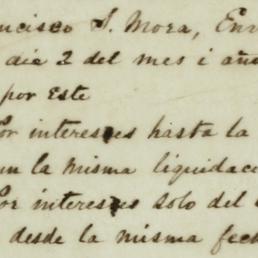 ncisco S. Mora, Enr
dia 2 del mes i año
por este
Por intereses hasta la
en la misma liquidac
Por intereses solo del
desde la misma fech